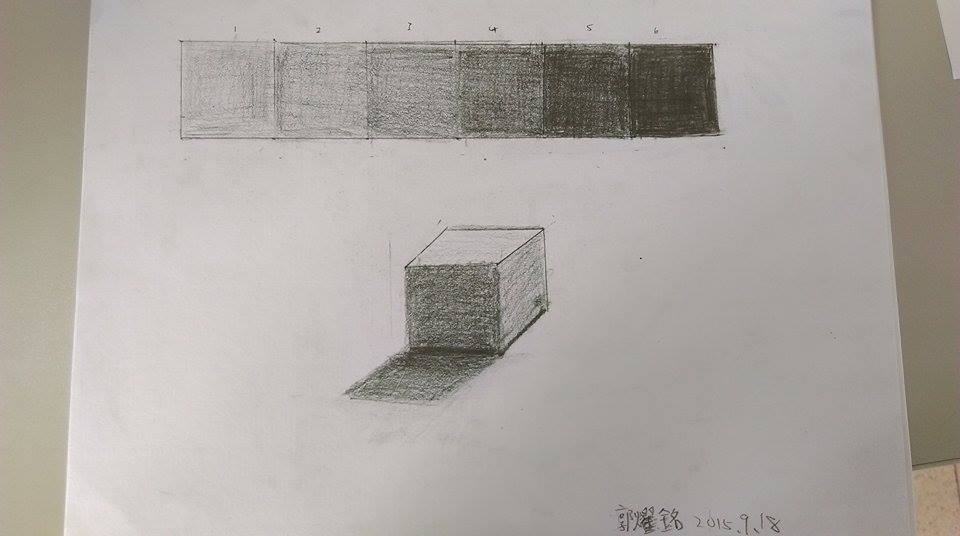 1 2 3 4 5 6
郭耀銘 2015.9.18